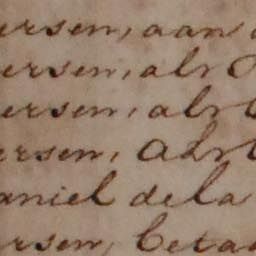 ersen, aan
ersen, als
ersen, als
ersen, Als
aniel dela
ersen, betaa